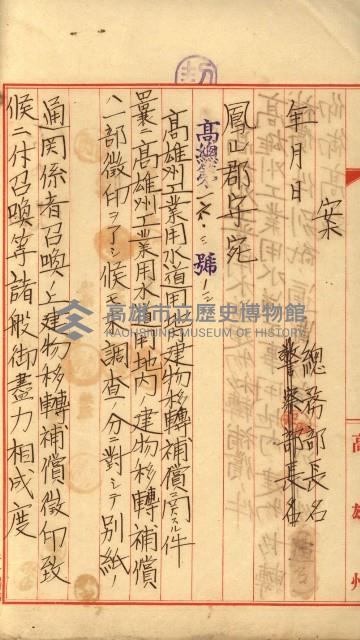 案
年月日
總務部長名
警察部長名
鳳山郡守宛
高總第 號ノ
高雄州工業用水道用地建物移轉補償ニ関スル件
曩ニ高雄州工業用水道用地内ノ建物移轉補償
ハ一部徴印ヲ了シ候モ 調査ノ分ニ對シテ別紙ノ
通関係者召喚ノ上建物移轉補償徴印致
候ニ付召喚等諸般御盡力相成度
高雄州
高雄市立歷史博物館
KAOHSIUNG MUSEUM OF HISTORY